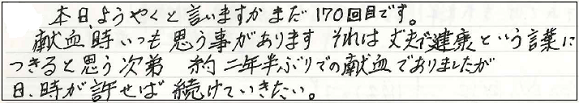 本日、ようやくと言いますかまだ170回目です。
献血時いつも思う事があります それは丈夫で健康という言葉に
つきると思う次第 約二年半ぶりでの献血でありましたが
日、時が許せば続けていきたい。